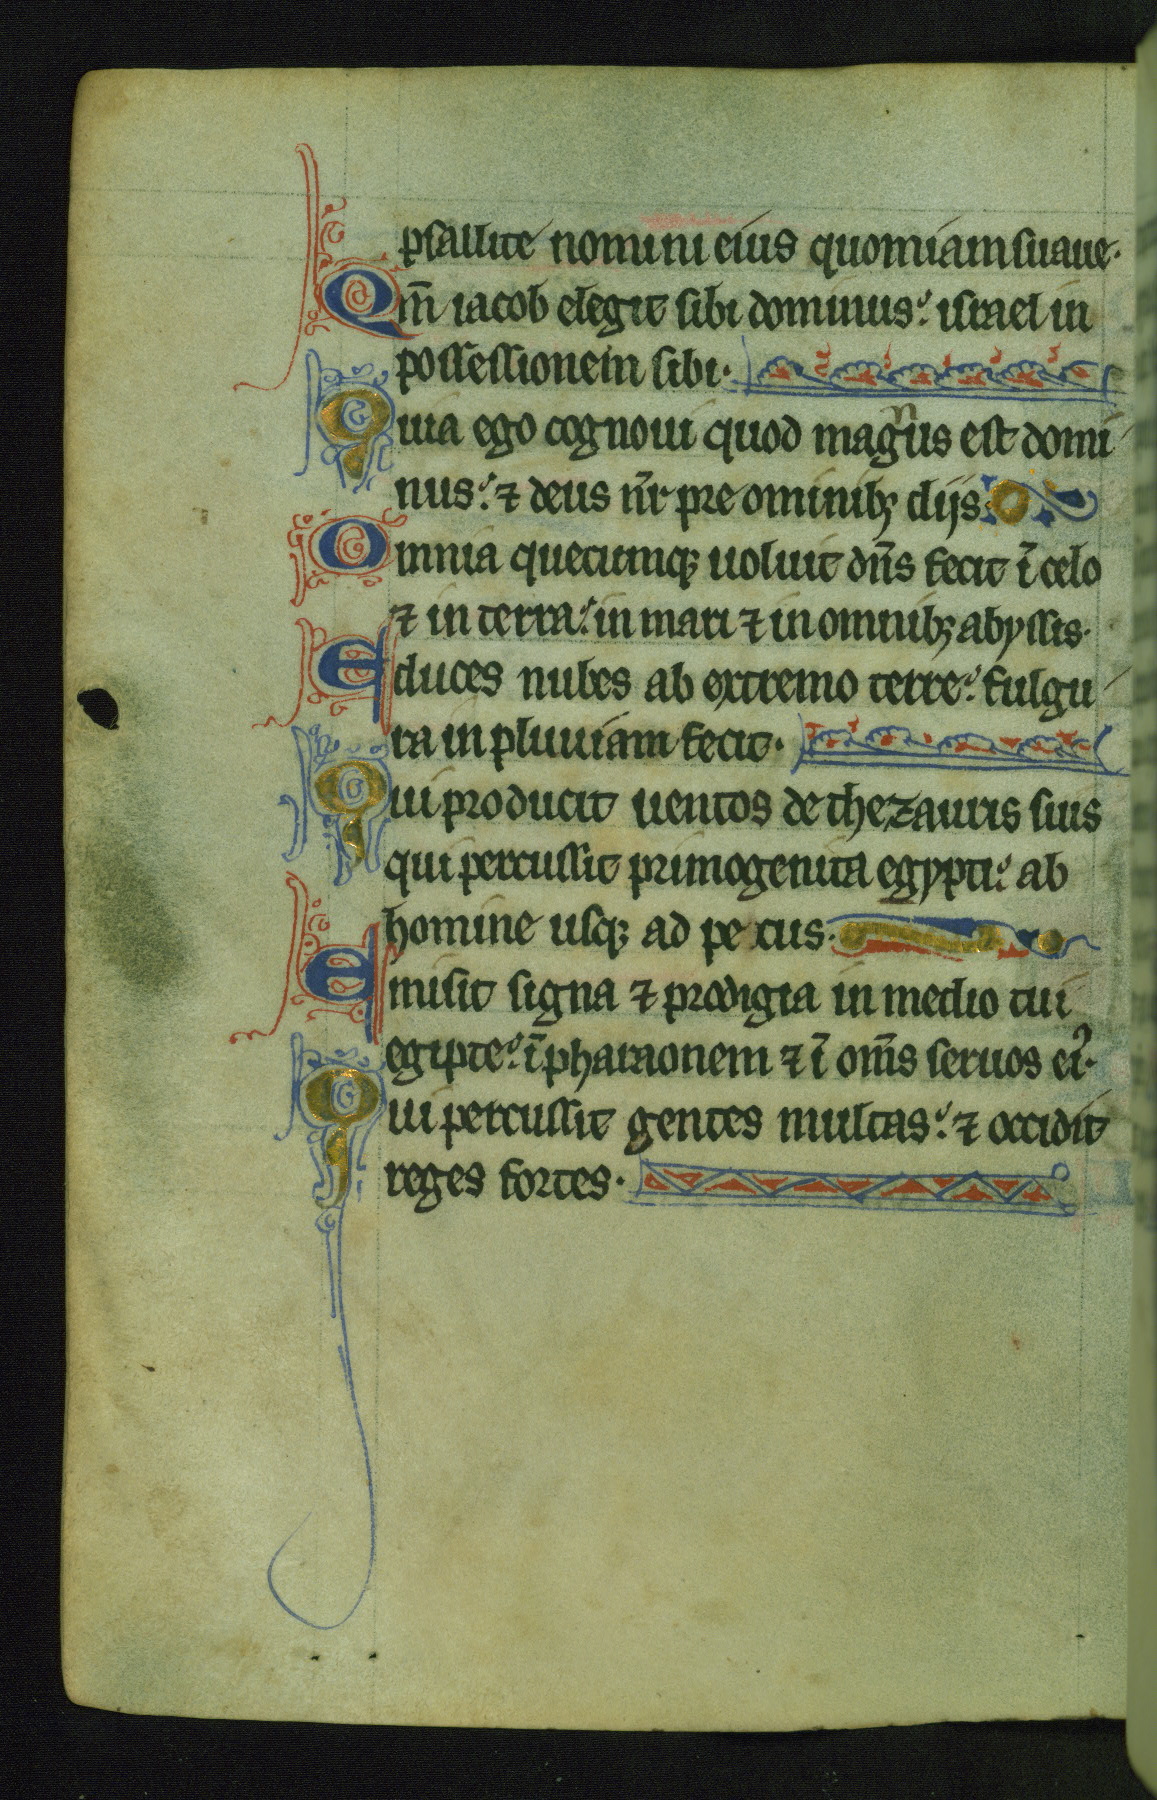 psallite nomini eius quoniam suaue·
Qm̄ iacob elegit sibi dominus: israel in
possessionem sibi·
Quia ego cognoui quod magnus est domi
nus: ⁊ deus nr̄ pre omnibꝫ dijs
Omnia quecumqꝫ uoluit dn̄s fecit ī celo
⁊ in terra: in mari ⁊ in omnibꝫ abyssis·
Educes nubes ab extremo terre: fulgu
ra in pluuiam fecit·
Qui producit uentos de thezauris suis
qui percussit primogenita egypti: ab
homine usqꝫ ad pecus·
Emisit signa ⁊ prodigia in medio tui
egipte: ī pharaonem ⁊ ī om̄s seruos eiꝰ·
Qui percussit gentes multas: ⁊ occidit
reges fortes·